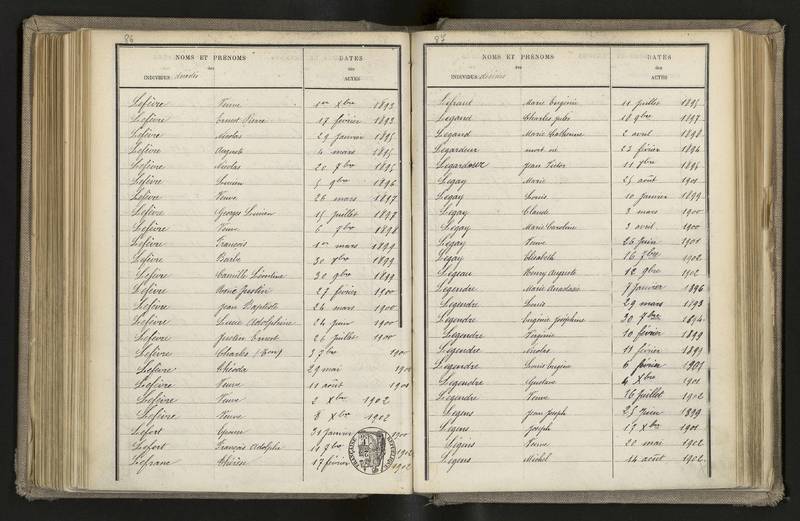 86
NOMS ET PRÉNOMS
des
INDIVIDUS décédés
DATES
des
ACTES
Lefèvre Veuve 1er Xbre 1893
Lefèvre Ernest Pierre 17 février 1893
Lefèvre Nicolas 29 Janvier 1895
Lefèvre Auguste 4 mars 1895
Lefèvre Nicolas 20 7bre 1895
Lefèvre Lucien 5 9bre 1896
Lefèvre Veuve 26 mars 1897
Lefèvre Georges Lucien 15 Juillet 1897
Lefèvre Veuve 6 7bre 1898
Lefèvre François 1er mars 1899
Lefèvre Barbe 30 Xbre 1899
Lefèvre Camille Léontine 30 9bre 1899
Lefèvre Justin 27 février 1900
Lefèvre Jean Baptiste 26 mars 1900
Lefèvre Lucie Adolphine 24 Juin 1900
Lefèvre Justin Ernest 26 Juillet 1900
Lefèvre Charles 3 7bre 1900
Lefèvre 29 mai 1901
Lefèvre Veuve 11 août 1901
Lefèvre Veuve 2 Xbre 1902
Lefèvre Veuve 8 Xbre 1902
Lefort 31 Janvier 1900
Lefort François Adolphe 11 7bre 1902
Lefranc Thérèse 17 février 1902
87
NOMS ET PRÉNOMS
des
INDIVIDUS décédés
DATES
des
ACTES
Lefranc Marie Eugénie 11 Juillet 1895
Legand Charles Jules 18 9bre 1897
Legand Marie Catherine 2 avril 1898
Legardeur mort né 23 février 1896
Legardeur Jean Victor 11 Xbre 1896
Legay Marie 25 août 1901
Legay Louis 10 Janvier 1899
Legay Claude 3 mars 1900
Legay Marie Caroline 3 avril 1900
Legay Veuve 26 Juin 1901
Legay Elisabeth 16 7bre 1902
Legeau Henry Auguste 12 9bre 1902
Legendre Marie Anastasie 7 Janvier 1896
Legendre Louis 29 mars 1893
Legendre Eugénie Joséphine 20 7bre 1894
Legendre Virginie 10 février 1899
Legendre Nicolas 11 février 1899
Legendre Louis Eugène 6 février 1901
Legendre Gustave 4 Xbre 1901
Legendre Veuve 16 Juillet 1902
Legens Jean Joseph 25 Juin 1899
Legens Joseph 17 Xbre 1901
Legens Veuve 20 mai 1902
Legens Michel 14 août 1902